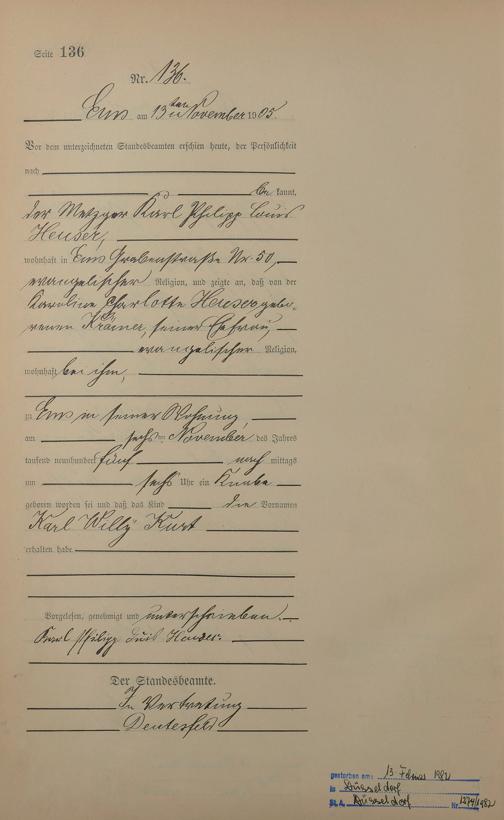 Seite 136
Nr. 136.
Ems am 13ten November 1905.
Vor dem unterzeichneten Standesbeamten erschien heute, der Persönlichkeit
nach
be kannt,
der Metzger Karl Philipp Louis
Heuser,
wohnhaft in Ems Grabenstraße Nr. 50,
evangelischer Religion, und zeigte an, daß von der
Karoline Charlotte Heuser gebo-
renen Krämer, seiner Ehefrau,
evangelischer Religion,
wohnhaft bei ihm,
zu Ems in seiner Wohnung
am sechsten November des Jahres
tausend neunhundert fünf nach mittags
um sechs Uhr ein Knabe
geboren worden sei und daß das Kind die Vornamen
Karl Willy Kurt
erhalten habe.
Vorgelesen, genehmigt und unterschrieben.
Karl Philipp Luis Heuser.
Der Standesbeamte.
In Vertretung
gestorben am: 13 Februar 1982
in Düsseldorf
St. A. Düsseldorf Nr. 1274/1982